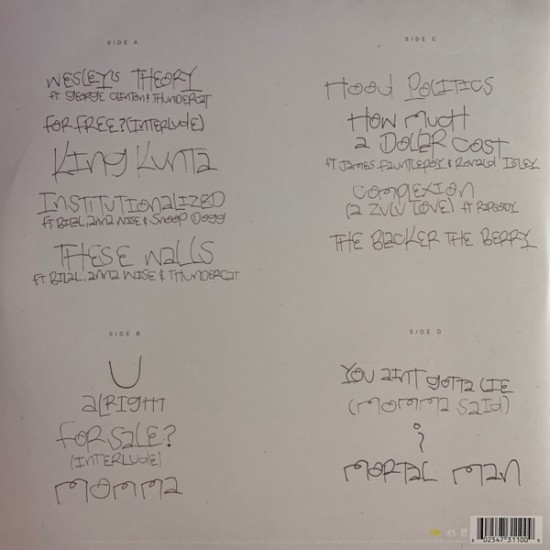 SIDE A
WESLEY'S THEORY
ft GEORGE CLINTON & THUNDERCAT
FOR FREE? (INTERLUDE)
KING KUNTA
INSTITUTIONALIZED
ft BILAL, ANNA WISE & SNOOP DOGG
THESE WALLS
ft BILAL, ANNA WISE & THUNDERCAT
SIDE B
U
ALRIGHT
FOR SALE?
(INTERLUDE)
MOMMA
SIDE C
HOOD POLITICS
HOW MUCH
A DOLLAR COST
ft JAMES FAUNTLEROY & RONALD ISLEY
COMPLEXION
(A ZULU LOVE) ft RAPSODY
THE BLACKER THE BERRY
SIDE D
YOU AINT GOTTA LIE
(MOMMA SAID)
i
MORTAL MAN
6 02547 31100 9